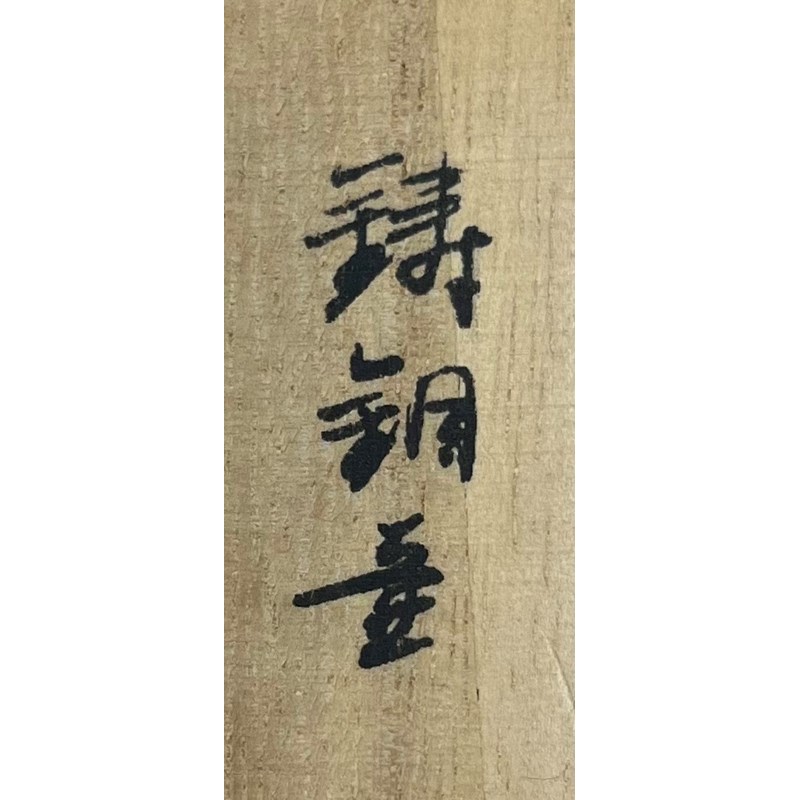 鋳銅壷